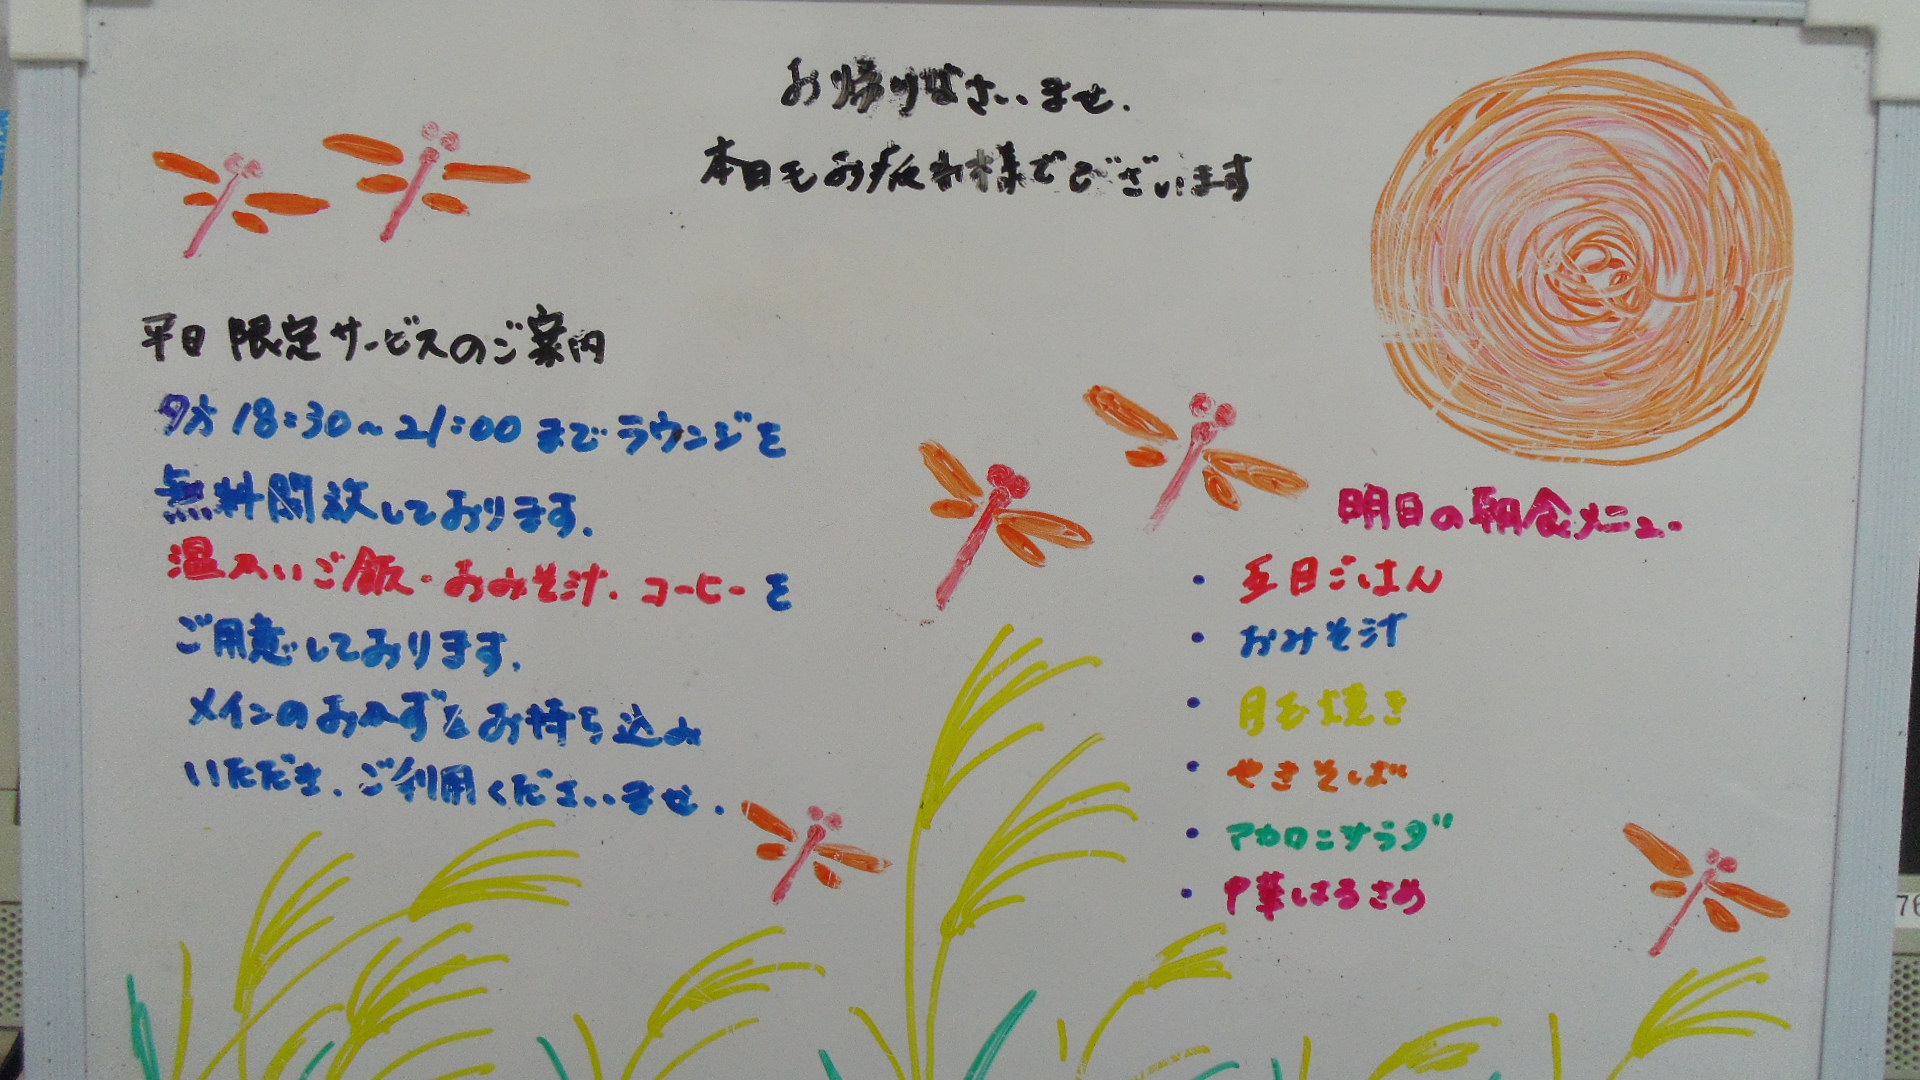 お帰りなさいませ.
本日もお疲れ様でございます
平日限定サービスのご案内
夕方18:30~21:00までラウンジを
無料開放しております.
温かいご飯・おみそ汁.コーヒーを
ご用意しております.
メインのおかずをお持ち込み
いただき.ご利用くださいませ.
明日の朝食メニュー
・五目ごはん
・おみそ汁
・月毛焼き
・やきそば
・マカロニサラダ
・中華はるさめ
76